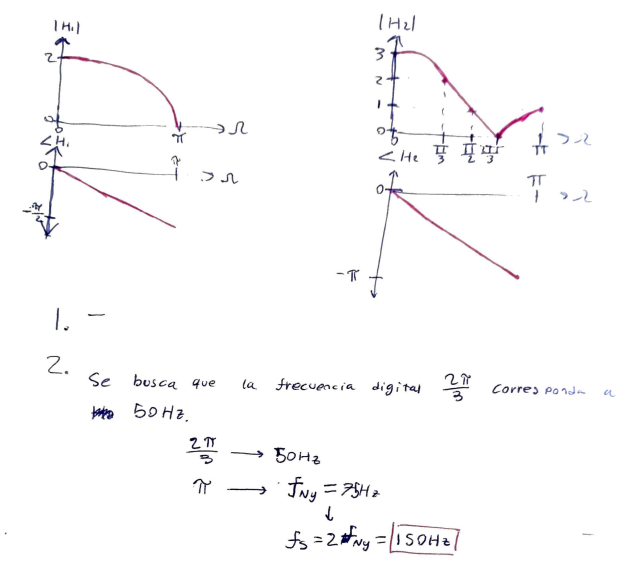 |H₁|
2
0
0
π
Ω
<H₁
0
π
Ω
-π/2
|H₂|
3
2
1
0
0
π/3
π/2
π
Ω
<H₂
0
π
Ω
-π
1. -
2.
Se busca que la frecuencia digital 2π/3 corresponda a
50Hz.
2π/3 → 50Hz
π → f_Ny = 75Hz
↓
f_s = 2 f_Ny = 150Hz